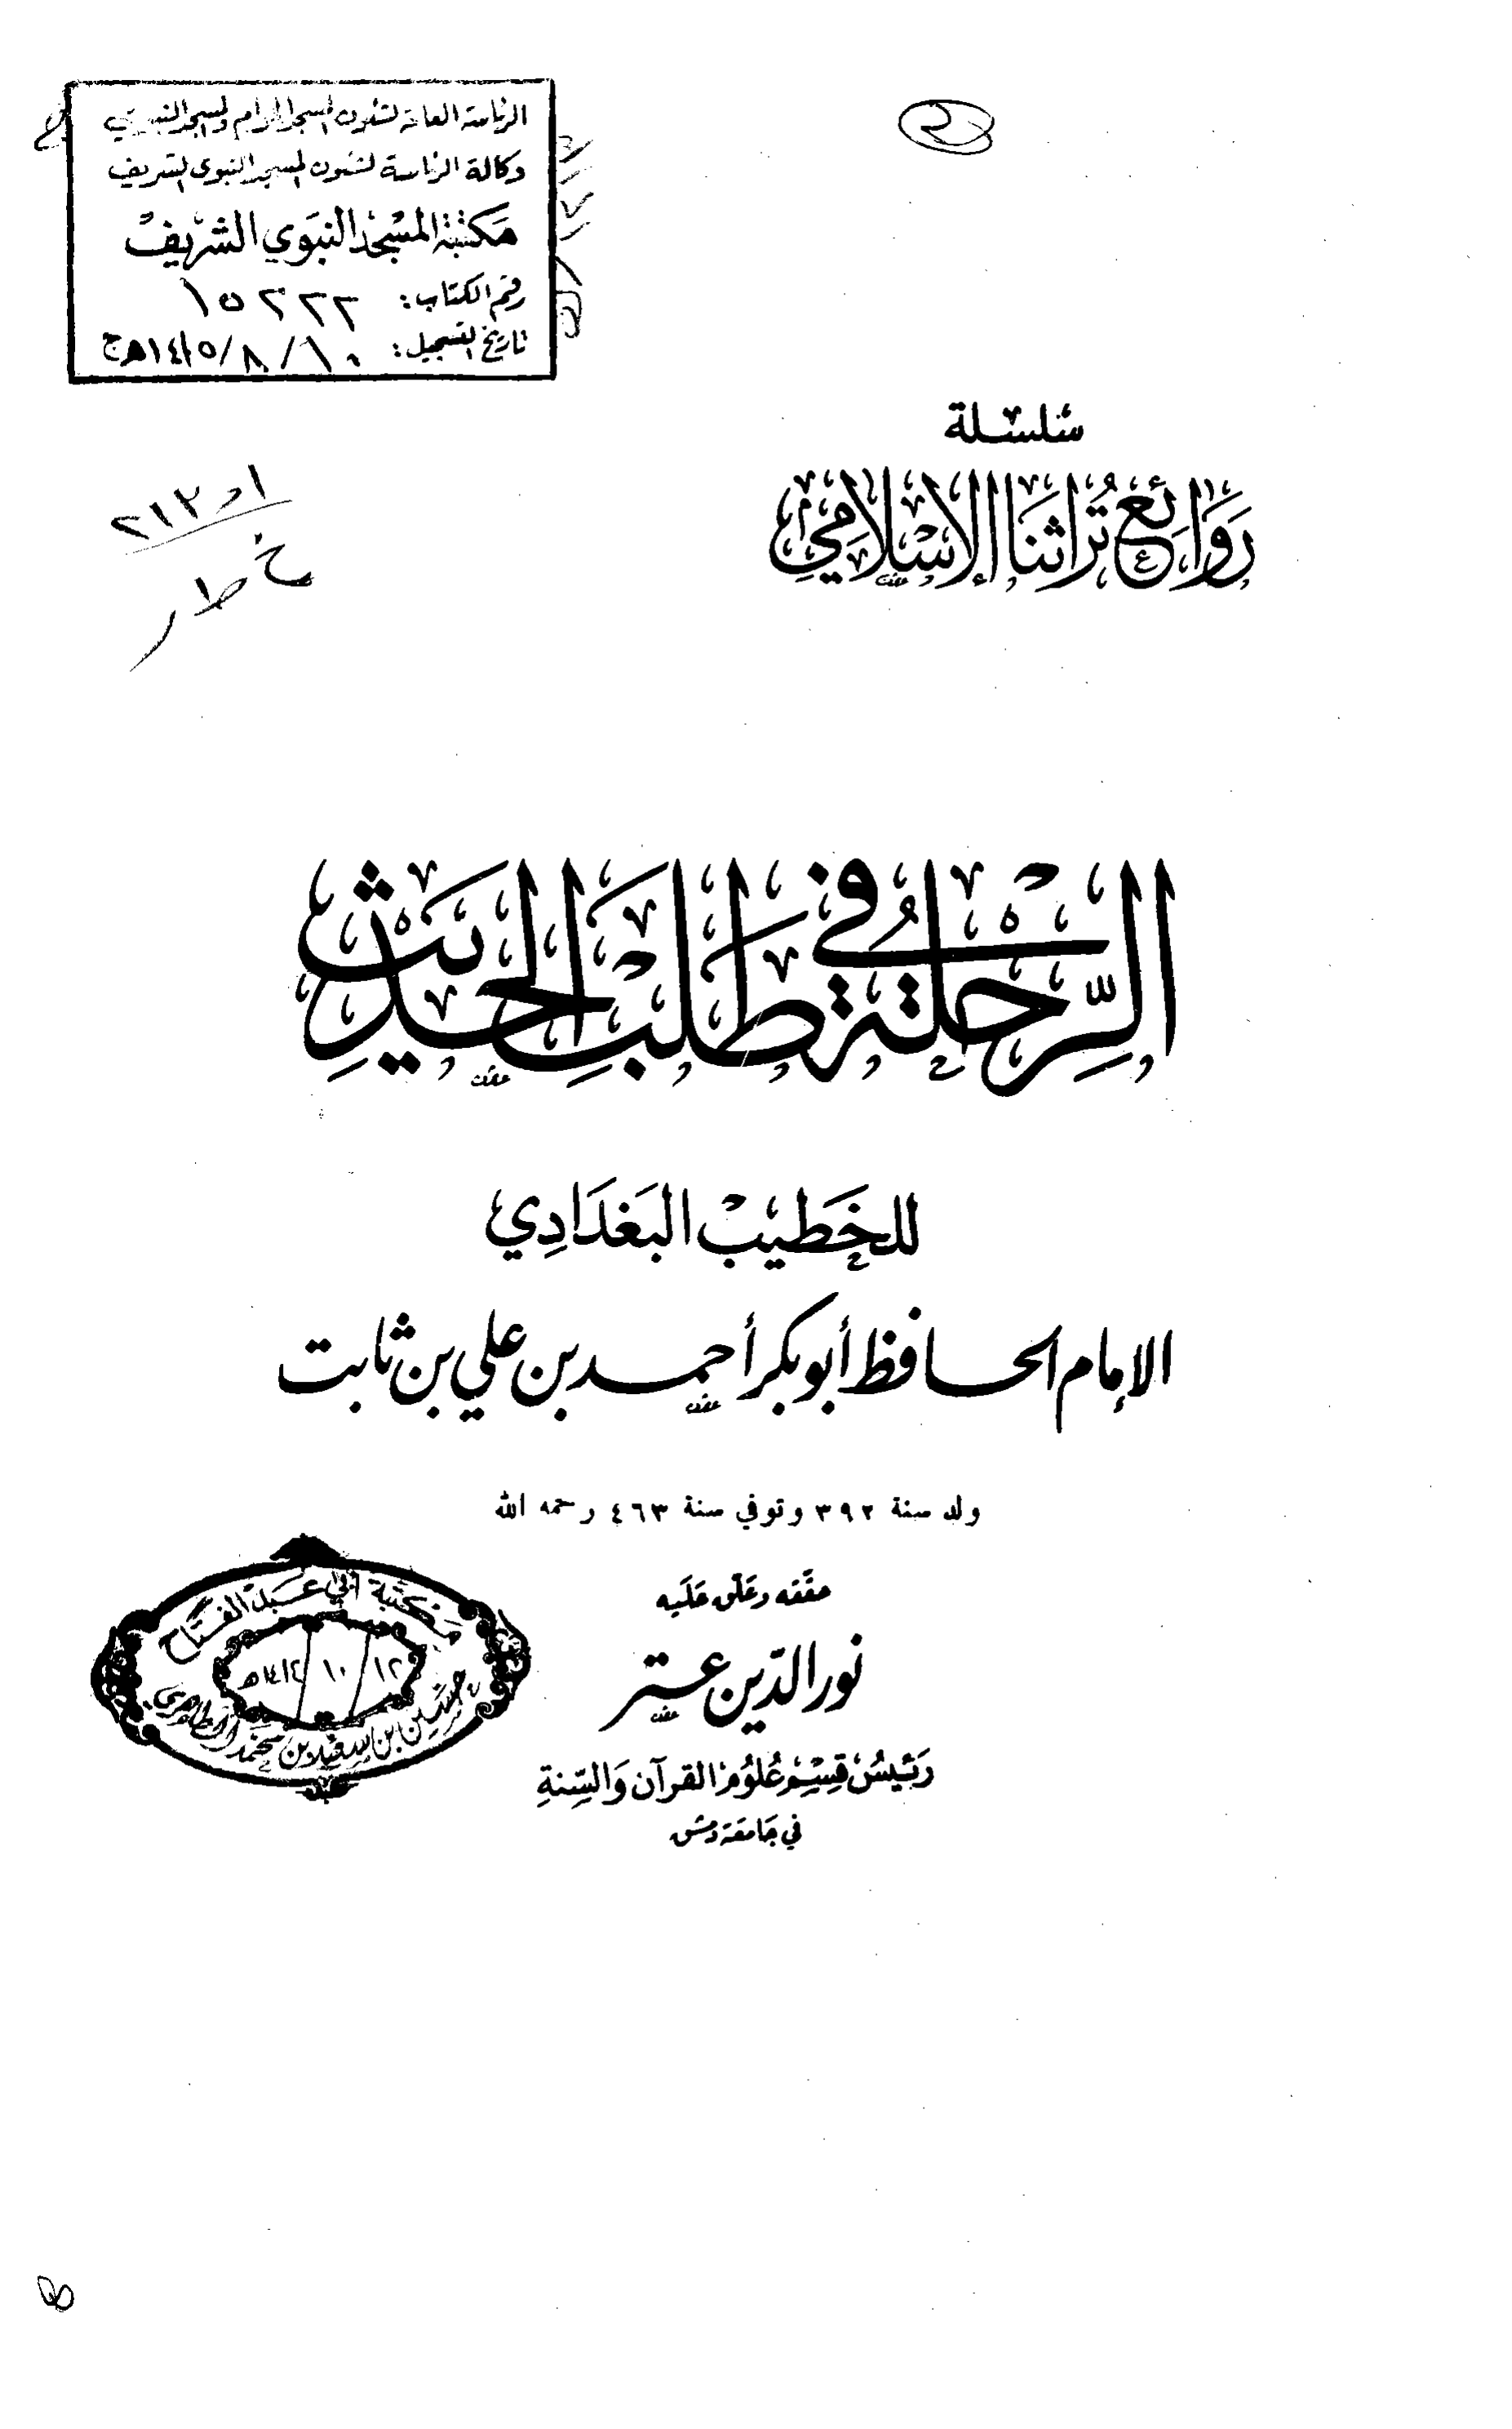 الرئاسة العامة لشئون المسجد الحرام والمسجد النبوي
وكالة الرئاسة لشئون المسجد النبوي الشريف
مَكتبة المسْجد النبَوي الشريفْ
رقم الكتاب: ١٥٢٢٢
تاريخ التسجيل: ١٠/٨/١٤٠٥هـ ج
٢١٣٫١
خ ط ر
سلسلة
رَوَائع تُراثنَا الإسْلامِي
الرِّحلة في طَلبْ الحَديث
للخَطيبْ البَغدَادِي
الإمام الحافظ أبو بكر أحمد بن علي بن ثابت
ولد سنة ٣٩٢ وتوفي سنة ٤٦٣ رحمه الله
حققه وعلّق عليه
نور الدّين عتر
رَئيسُ قِسْم عُلوُم القرآن وَالسِّنةِ
في جَامعَة دمشق
مكتبة أبي عبد الفتاح
١٢ / ١٠ / ١٤١٢هـ
حسين بن سعيد بن محمد